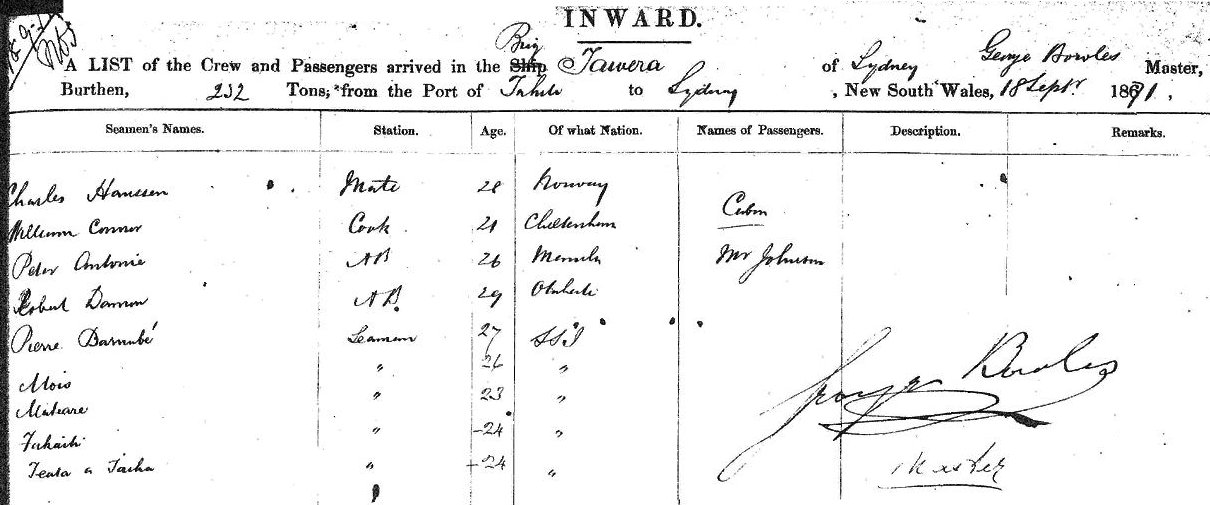 INWARD.
Brig
A LIST of the Crew and Passengers arrived in the Ship Tawera of Sydney George Bowles Master,
Burthen, 232 Tons, from the Port of Tahiti to Sydney , New South Wales, 18 Septr 1871.
Seamen's Names. Station. Age. Of what Nation. Names of Passengers. Description. Remarks.
Charles Hanssen Mate 28 Norway
William Connor Cook 21 Cheltenham Cabin
Peter Antonie AB 26 Manila Mr Johnson
Robert AB 29 Otaheiti
Pierre Barnabé Seaman 27 SSI
Mois " 26 "
Mateare " 23 "
Tuhaiti " 24 "
Teata a " 24 "
George Bowles
Master